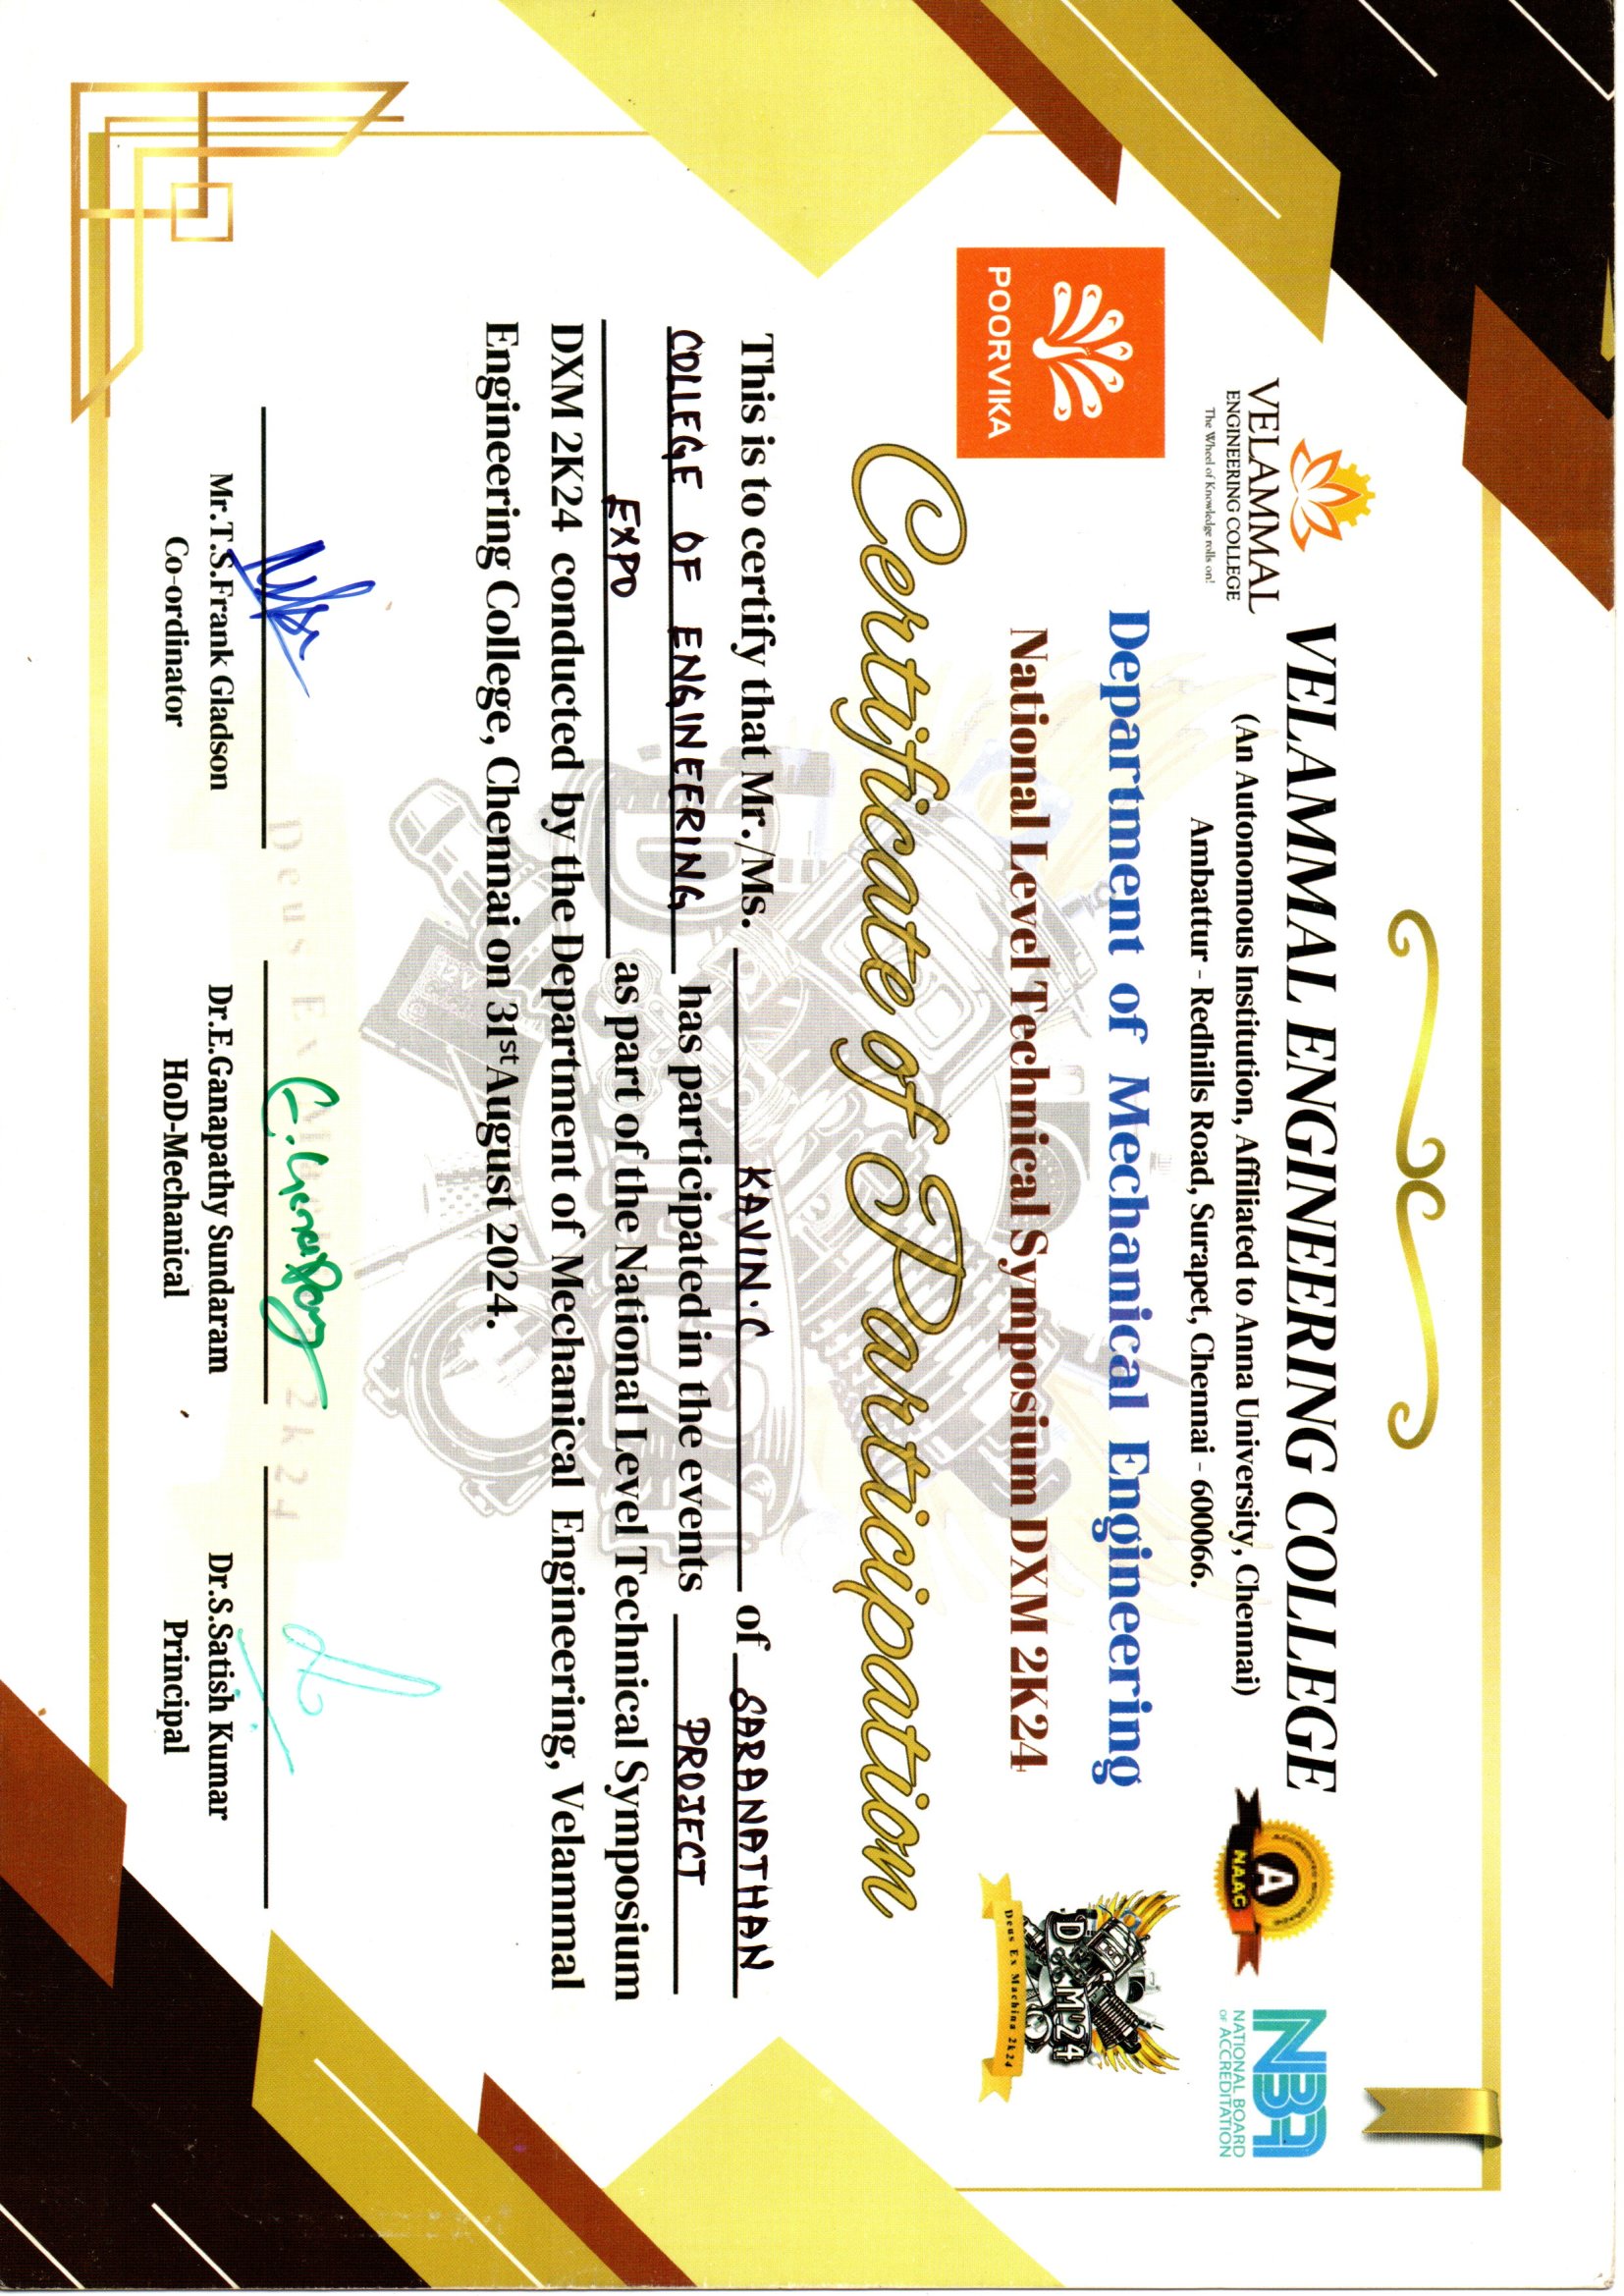 VELAMMAL
ENGINEERING COLLEGE
The Wheel of Knowledge rolls on!
VELAMMAL ENGINEERING COLLEGE
(An Autonomous Institution, Affiliated to Anna University, Chennai)
Ambattur - Redhills Road, Surapet, Chennai - 600066.
A
NAAC
NBA
NATIONAL BOARD
OF ACCREDITATION
POORVIKA
Department of Mechanical Engineering
National Level Technical Symposium DXM 2K24
D M'24
Deus Ex Machina 2k24
Certificate of Participation
This is to certify that Mr./Ms. KAVIN.C of SARANATHAN
COLLEGE OF ENGINEERING has participated in the events PROJECT
EXPO as part of the National Level Technical Symposium
DXM 2K24 conducted by the Department of Mechanical Engineering, Velammal
Engineering College, Chennai on 31st August 2024.
D M'24
Deus Ex Machina 2k24
Mr.T.S.Frank Gladson
Co-ordinator
Dr.E.Ganapathy Sundaram
HoD-Mechanical
Dr.S.Satish Kumar
Principal